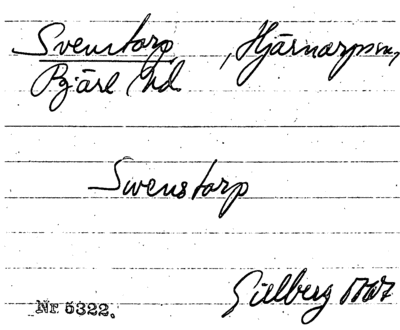 Svenstorp, Hjärnarpsn,
Bjäre hd.
Swenstorp
Gillberg 1767
Nr 5322.